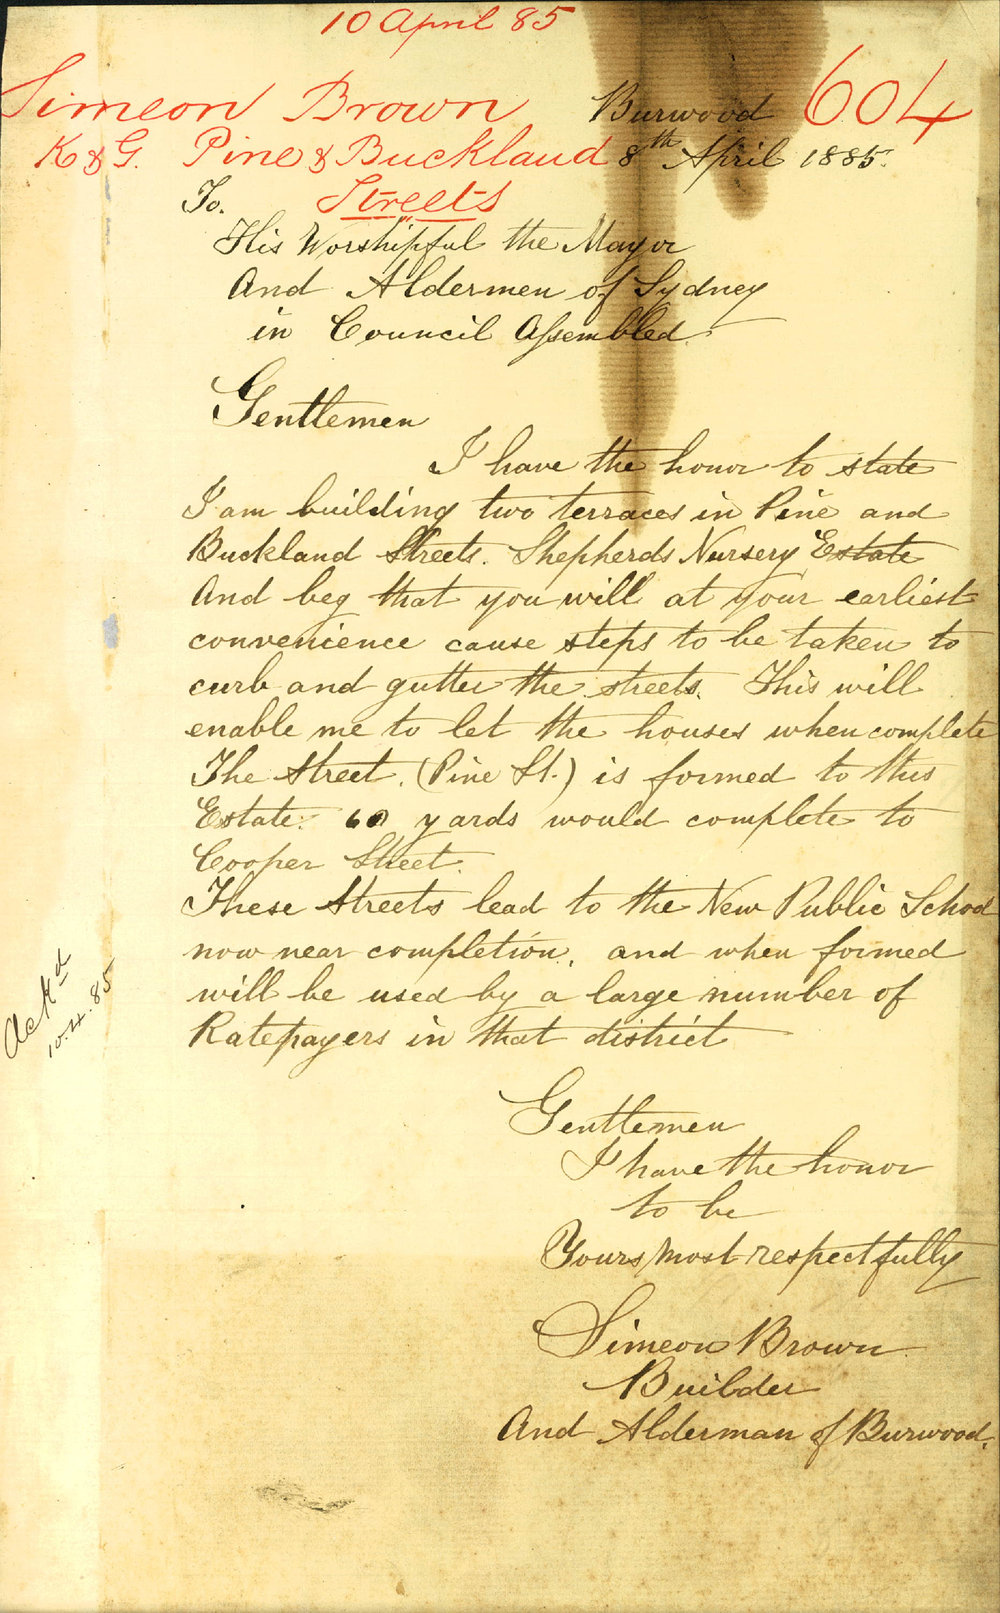 10 April 85
Simeon Brown
604
K & G. Pine & Buckland
Streets
Burwood
8th April 1885.
To.
His Worshipful the Mayor
And Aldermen of Sydney
in Council Assembled.
Gentlemen
I have the honor to state
I am building two terraces in Pine and
Buckland Streets. Shepherds Nursery Estate
And beg that you will at your earliest
convenience cause steps to be taken to
curb and gutter the streets. This will
enable me to let the houses when complete
The Street. (Pine St.) is formed to this
Estate. 60 yards would complete to
Cooper Street.
These Streets lead to the New Public School
now near completion. and when formed
will be used by a large number of
Ratepayers in that district
Ackd
10.4.85
Gentlemen
I have the honor
to be
Yours most respectfully
Simeon Brown
Builder
And Alderman of Burwood.